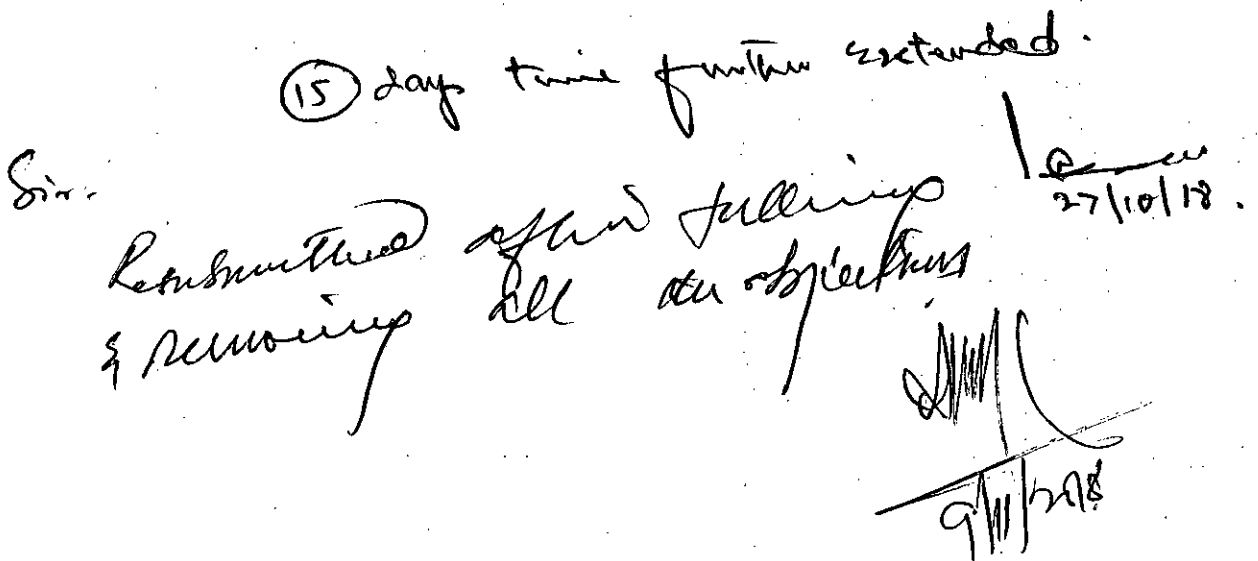 15 days time further extended.
27/10/18.
Sir.
Resubmitted after fulling
& removing all the objections
9/11/2018